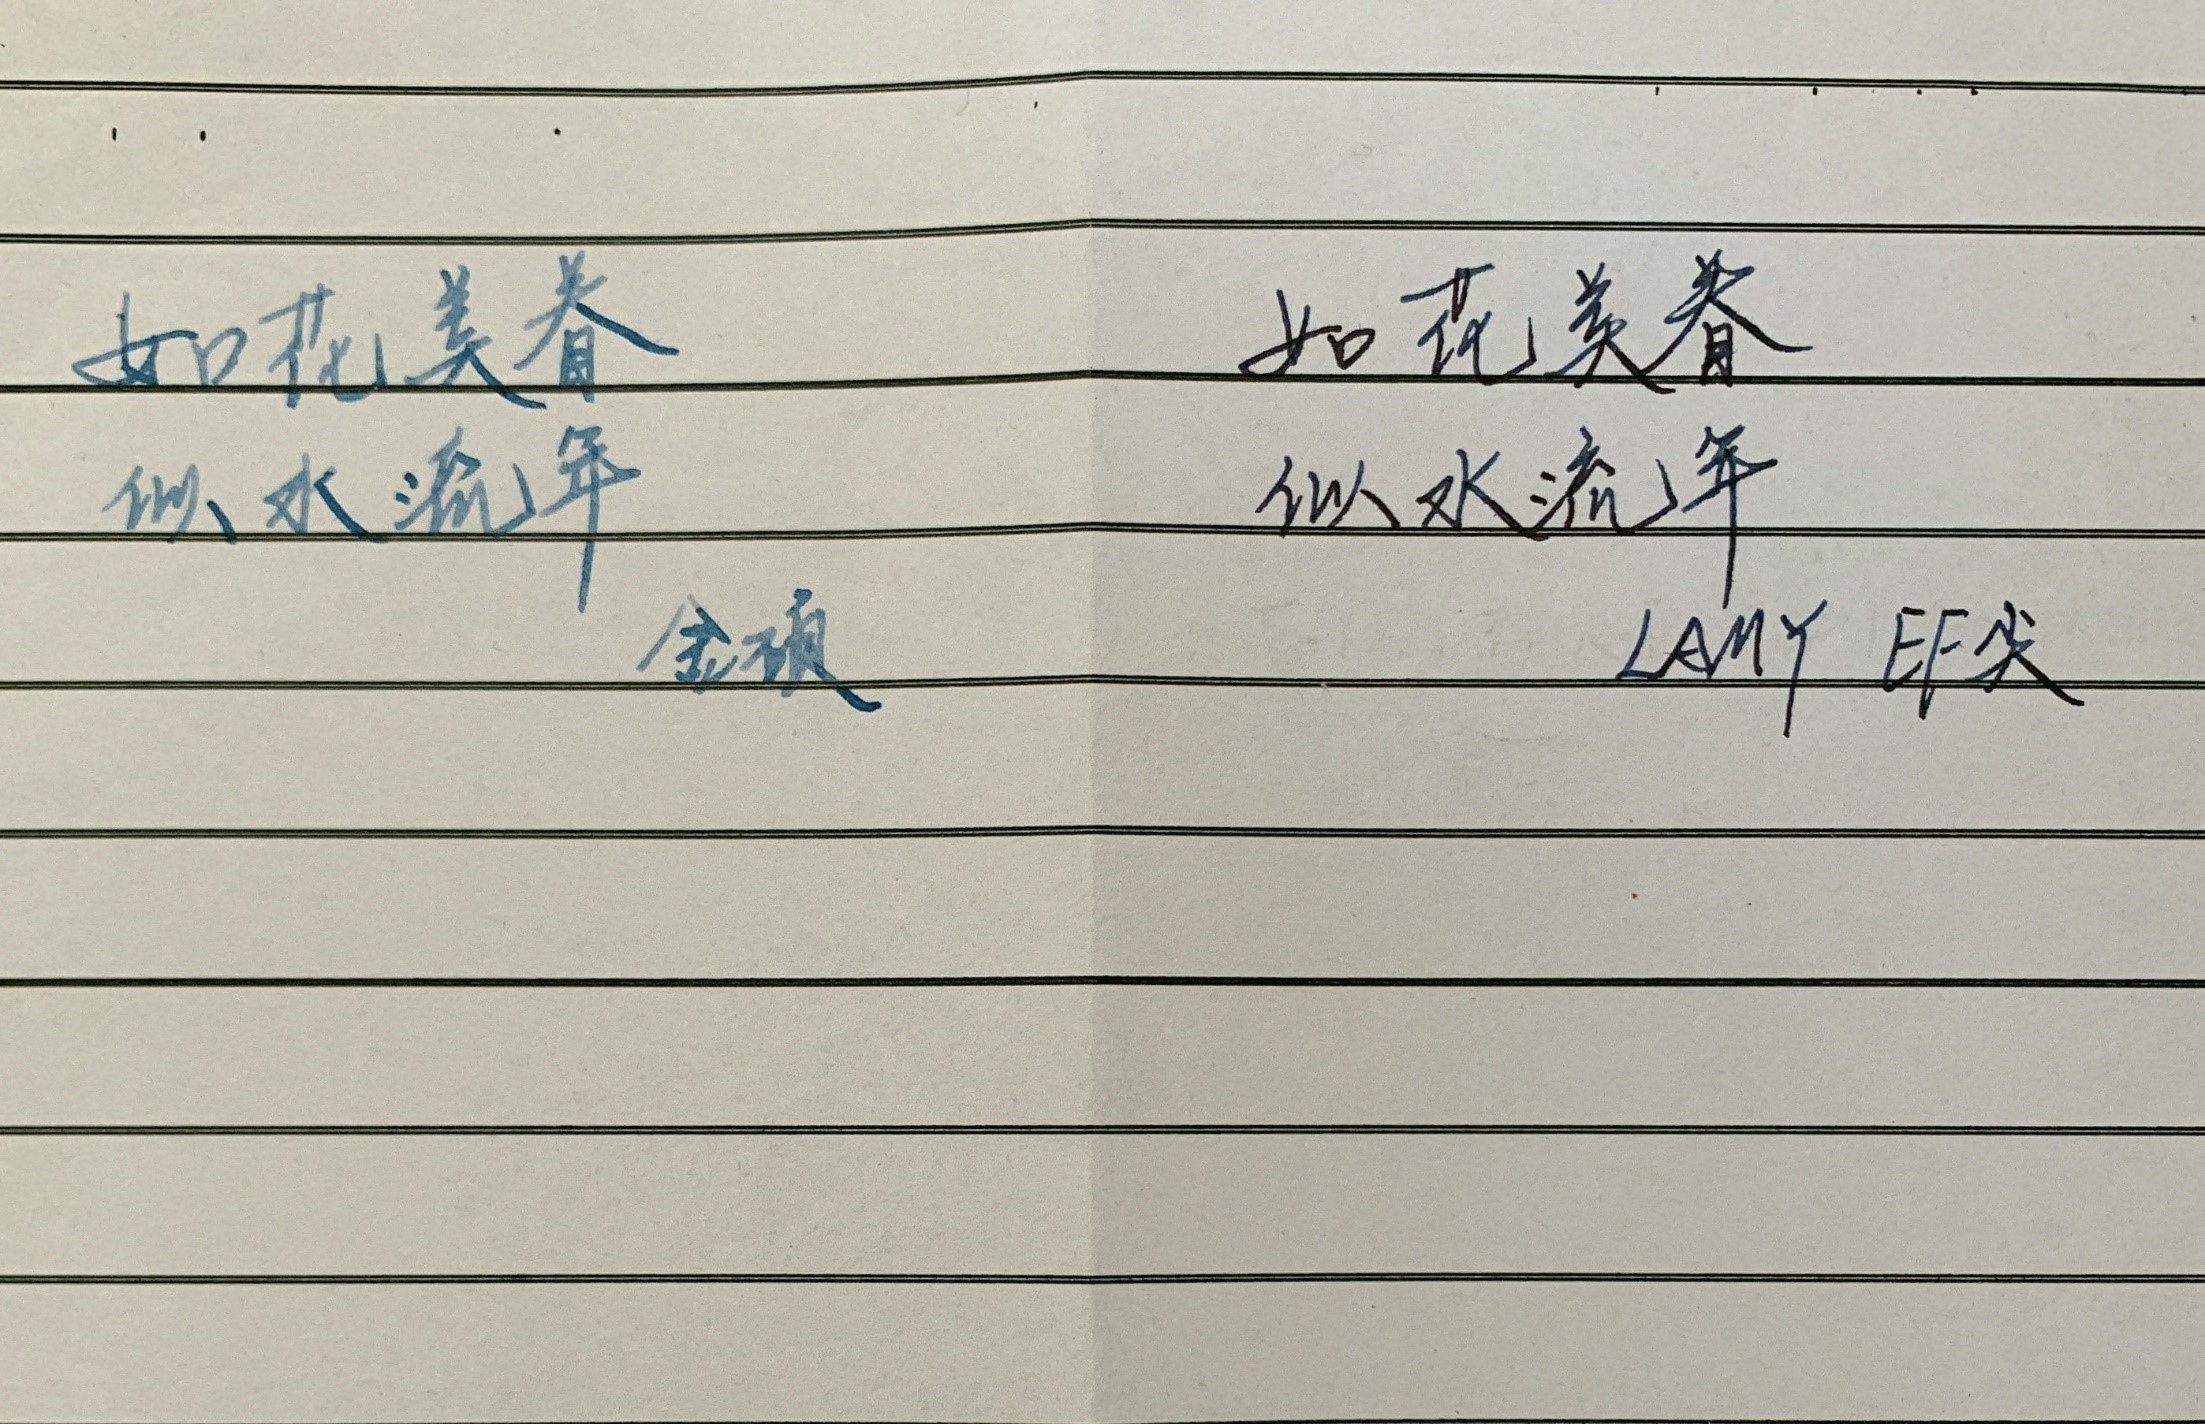 如花美眷
似水流年
金硕
如花美眷
似水流年
LAMY EF尖